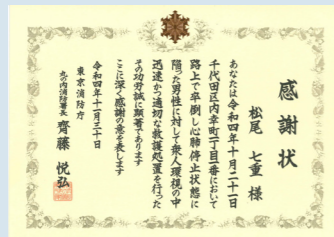 感謝状
松尾 七重 様
あなたは令和四年十月二十一日
千代田区内幸町一丁目一番において
路上で卒倒し心肺停止状態に
陥った男性に対して衆人環視の中
迅速かつ適切な救護処置を行った
その功労誠に顕著であります
ここに深く感謝の意を表します
令和四年十一月三十日
東京消防庁
丸の内消防署長 齊藤 悦弘